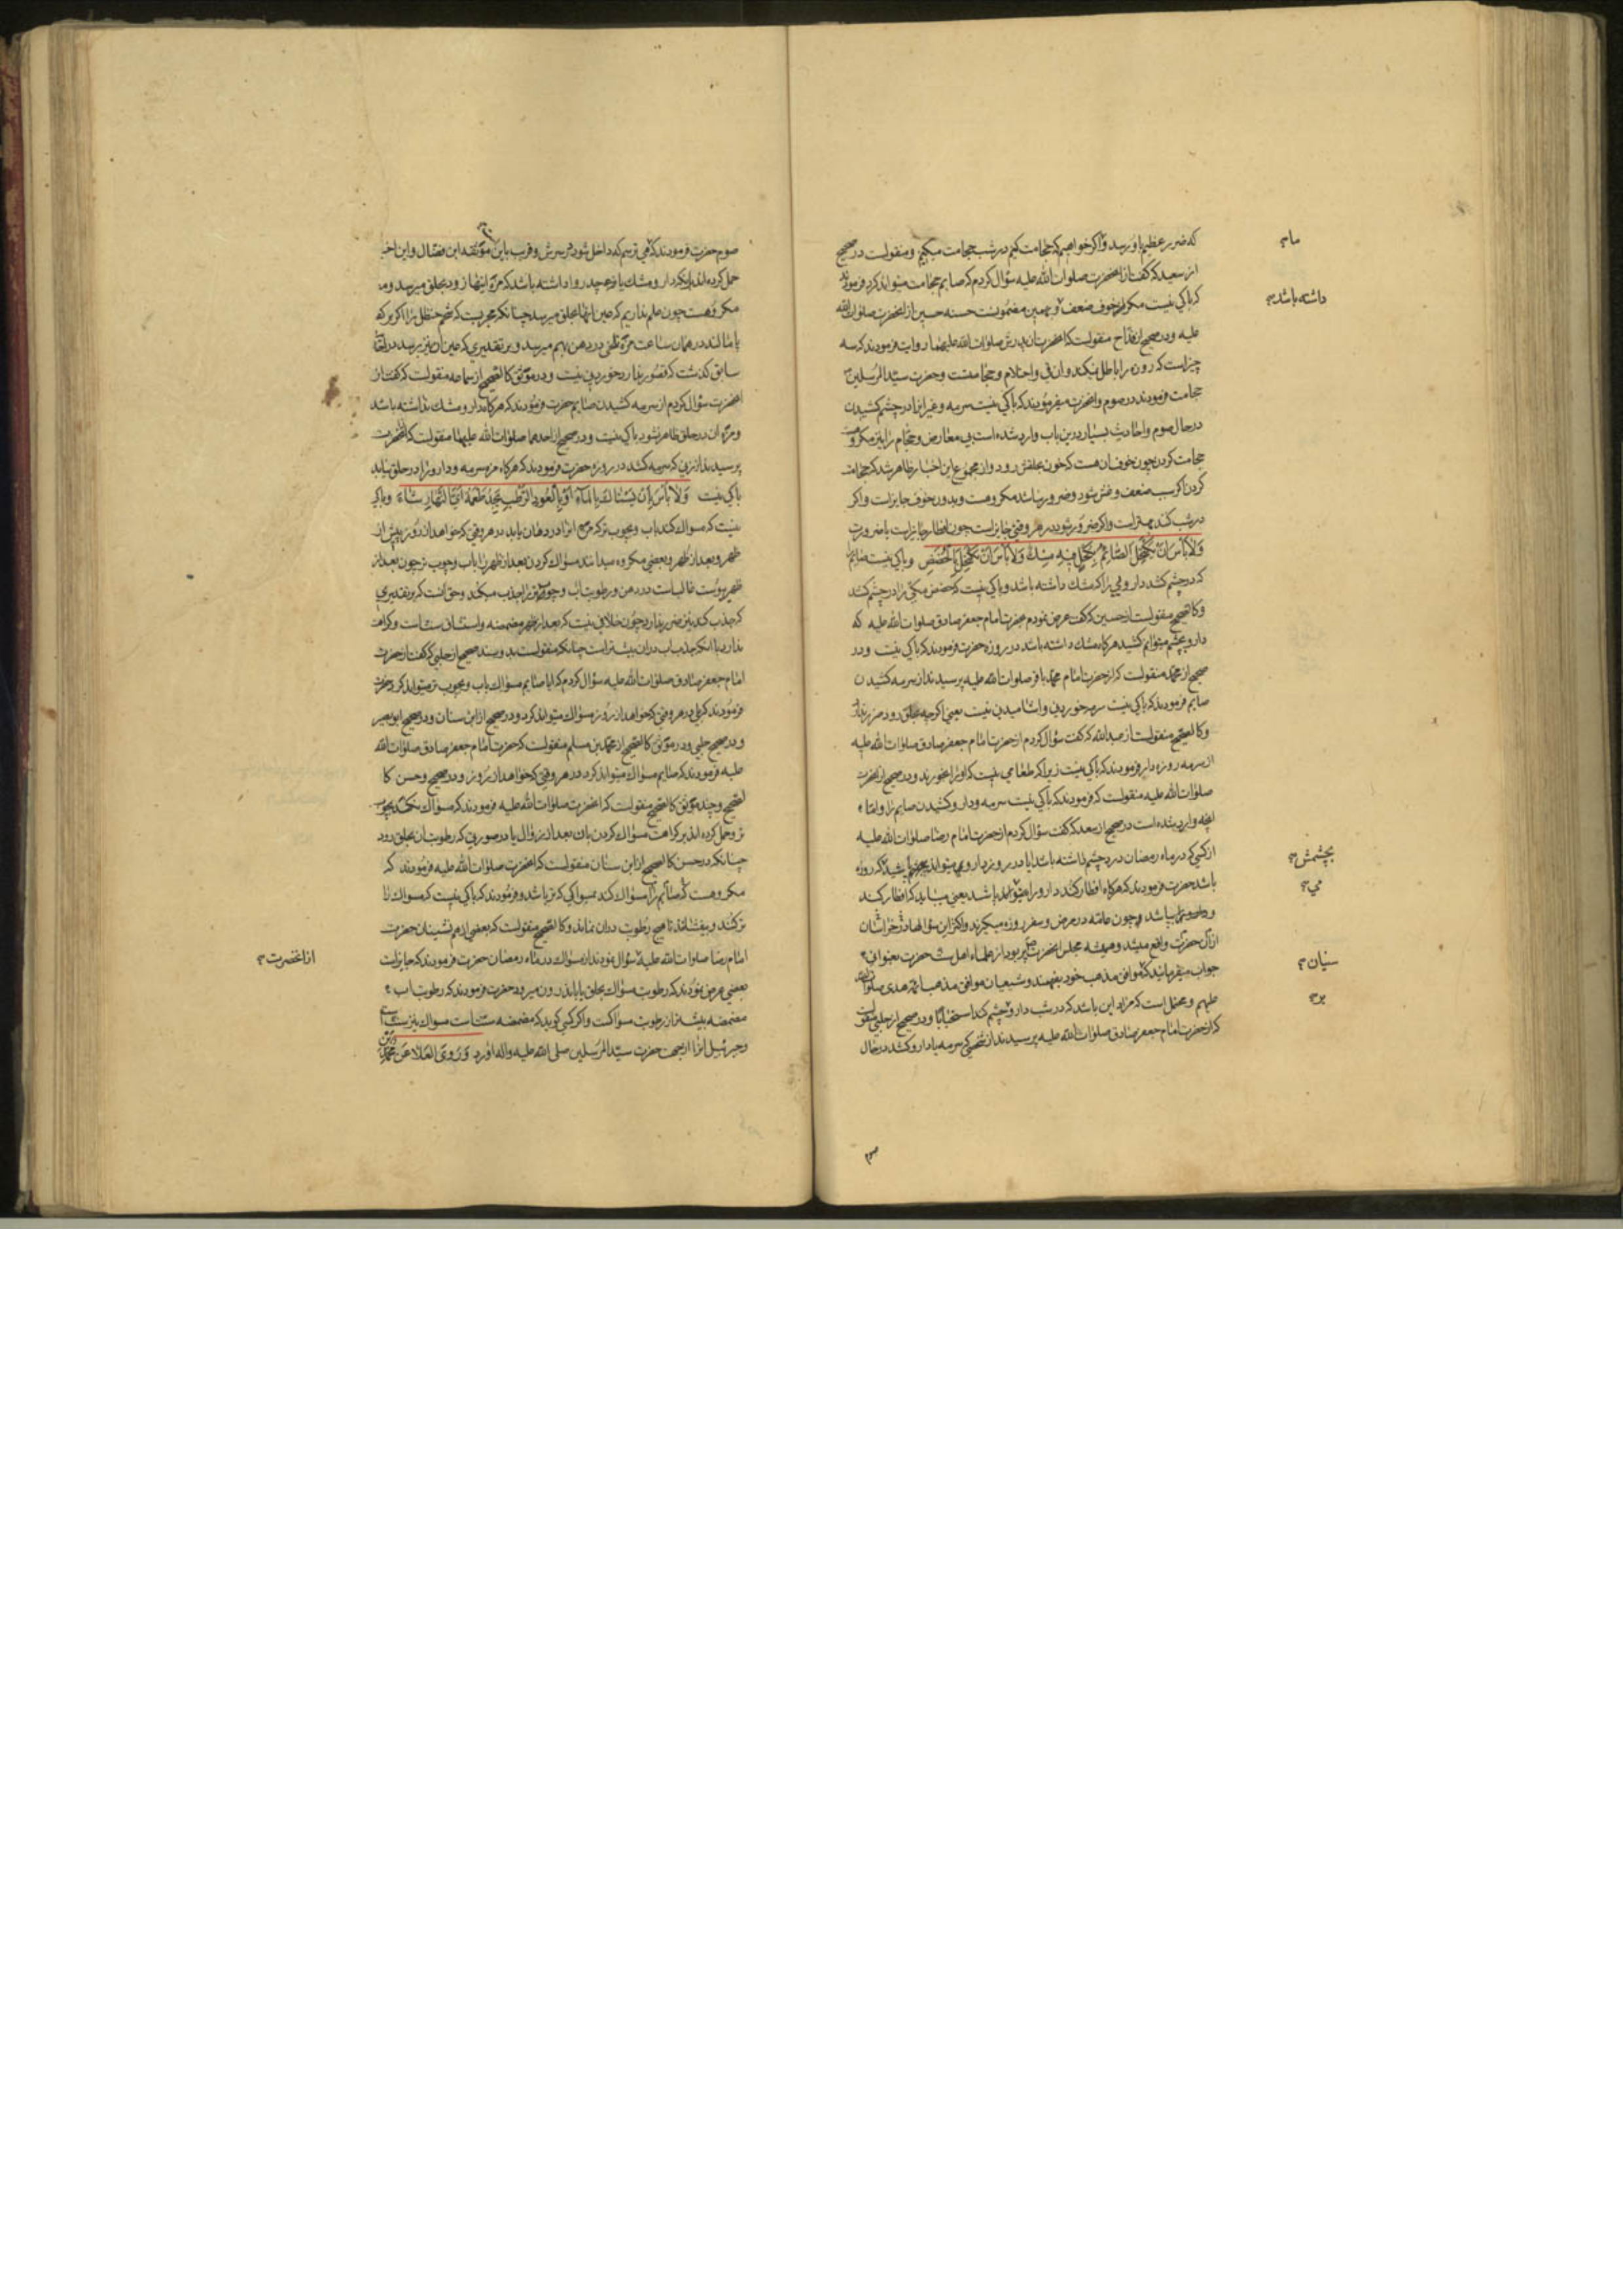 که ضرر عظیم باو رسد و اکر خواهیم که حجامت کنیم در شب حجامت میکنیم و منقولست در صحیح
از سعید که کفت از انحضرت صلوات الله علیه سؤال کردم که صایم حجامت میتواند کرد فرمودند
که باکی نیست مکر از خوف ضعف و بهمین مضمونست حسنه حسین از انحضرت صلوات الله
علیه و در صحیح از قداح منقولست که انحضرت از پدرش صلوات الله علیهما روایت فرمودند که سه
چیزاست که روزه را باطل نمیکند و ان قی و احتلام و حجامتست و حضرت سید المرسلین
حجامت فرمودند در صوم و انحضرت میفرمودند که باکی نیست سرمه و غیر انرا در چشم کشیدن
در حال صوم و احادیث بسیار درین باب وارد شده است بی معارض و حجام را نیز مکروهست
حجامت کردن چون خوف ان هست که خون بحلقش رود و از مجموع این اخبار ظاهر شد که حجامت
کردن اکر سبب ضعف و غش شود و ضرور نباشد مکروهست و بدون خوف جایزاست و اکر
در شب کند بهتر است و اکر ضرور شود در هر وقتی جایزاست چون افطار جایزاست با ضرورت
وَلاَ بَأسَ اَنْ یَکْتَحِلَ الصّائِمُ بِکُحْلٍ فیهِ مِسْكٌ وَلاَ بَأسَ اَنْ یَکْتَحِلَ بِالْحُضَضِ و باکی نیست صایم را
که در چشم کشد دارویی را که مشك داشته باشد و باکی نیست که حضض مکی را در چشم کشد
و کالصحیح منقولست از حسین که کفت عرض نمودم بحضرت امام جعفر صادق صلوات الله علیه که
دارو بچشم میتوانم کشید هرکاه مشك داشته باشد در روزه حضرت فرمودند که باکی نیست و در
صحیح از محمد منقولست که از حضرت امام محمد باقر صلوات الله علیه پرسیدند از سرمه کشیدن
صایم فرمودند که باکی نیست سرمه خوردنی و اشامیدنی نیست یعنی اکرچه بحلق رود ضرر ندارد
و کالصحیح منقولست از عبدالله که کفت سؤال کردم از حضرت امام جعفر صادق صلوات الله علیه
از سرمه روزه دار فرمودند که باکی نیست زیرا که طعامی نیست که اورا بخورند و در صحیح از انحضرت
صلوات الله علیه منقولست که فرمودند که باکی نیست سرمه و دارو کشیدن صایم را و اما
انچه وارد شده است در صحیح از سعد که کفت سؤال کردم از حضرت امام رضا صلوات الله علیه
از کسی که در ماه رمضان درد چشم داشته باشد ایا در روز دارو میتواند کشید که روزه
باشد حضرت فرمودند که هرکاه افطار کند دارو را میتواند باشد یعنی میباید که افطار کند
چون عامه در مرض و سفر روزه میکیرند و اکثر این سؤالها در خراسان
از ان حضرت واقع میشد و همیشه مجلس انحضرت پر بود از علماء اهل سنت حضرت بعنوانی
جواب میفرمایند که موافق مذهب خود بفهمند و شیعیان موافق مذهب ائمه هدی صلوات الله
علیهم و محتمل است که مراد این باشد که در شب دارو بچشم کند استحبابا و در صحیح از حلبی منقولست
که از حضرت امام جعفر صادق صلوات الله علیه پرسیدند از شخصی که سرمه یا دارو کشد در حال
صوم
مام
داشته باشد
بچشمش
می
سنیان
بر
صوم حضرت فرمودند که نی ترسم که داخل شود در سرش و قریب باین موثقه ابن فضال و این اخبار
حمل کرده اند که دارو مشك یا مزه چند روا داشته باشد که مزه اینها زود بحلق میرسد و
مکروهست چون علم نداریم که عین انها بحلق میرسد چنانکه مجربست که شحم حنظل را اکر بر کف
پا مالند در همان ساعت مزه تلخی در دهن بهم میرسد و بر تقدیری که عین ان نیز برسد در احتقان
سابق کذشت که قصور ندارد خوردنی نیست و در موثق کالصحیح از سماعه منقولست که کفت از
انحضرت سؤال کردم از سرمه کشیدن صایم حضرت فرمودند که هرکاه دارو مشك نداشته باشد
و مزه ان در حلق ظاهر نشود باکی نیست و در صحیح از احدهما صلوات الله علیهما منقولست که از انحضرت
پرسیدند از زنی که سرمه کشد در روزه حضرت فرمودند که هرکاه مزه سرمه و دارو را در حلق نیابد
باکی نیست وَلاَ بَأسَ اَنْ یَسْتَاكَ بِالْمَاءِ اَوْ بِالْعُودِ الرَّطْبِ یَجِدُ طَعْمَهُ اَیَّ النَّهَارِ شَاءَ و باکی
نیست که مسواك کند باب و بچوب تر که مزه انرا در دهان یابد در هر وقتی که خواهد از روز پیش از
ظهر و بعد از ظهر و بعضی مکروه میدانند مسواك کردن بعد از ظهر را باب و چوب تر چون بعد از
ظهر یبوست غالب است در دهن و رطوبت اب و چوب تر را جذب میکند و حق انست که بر تقدیری
که جذب کند نیز ضرر ندارد چون خلافی نیست که بعد از ظهر مضمضه و استنشاق سنت است و کراهت
ندارد با انکه جذب اب در ان بیشتر است چنانکه منقولست بدو سند صحیح از حلبی که کفت از حضرت
امام جعفر صادق صلوات الله علیه سؤال کردم که ایا صایم مسواك باب و بچوب تر میتواند کرد حضرت
فرمودند که بلی در هر وقتی که خواهد از روز مسواك میتواند کرد و در صحیح از ابن سنان و در صحیح ابو بصیر
و در صحیح حلبی و در موثق کالصحیح از محمد بن مسلم منقولست که حضرت امام جعفر صادق صلوات الله
علیه فرمودند که صایم مسواك میتواند کرد در هر وقتی که خواهد از روز و در صحیح و حسن کا
لصحیح و چند موثق کالصحیح منقولست که انحضرت صلوات الله علیه فرمودند که مسواك نکند بچوب
تر و حمل کرده اند بر کراهت مسواك کردن بان بعد از زوال یا در صورتی که رطوبت ان بحلق رود
چنانکه در حسن کالصحیح از ابن سنان منقولست که انحضرت صلوات الله علیه فرمودند که
مکروهست که صایم را مسواك کند بمسواکی که تر باشد و فرمودند که باکی نیست که مسواك را
تر کند و بیفشاند تا هیچ رطوبت در ان نماند و کالصحیح منقولست که بعضی از هم نشینان حضرت
امام رضا صلوات الله علیه سؤال نمودند از مسواك در ماه رمضان حضرت فرمودند که جایزاست
بعضی عرض نمودند که رطوبت مسواك بحلق یا باندرون میرود حضرت فرمودند که رطوبت اب
مضمضه بیشتر از رطوبت مسواکست و اکر کسی کوید که مضمضه سنت است مسواك نیز سنت است
و جبرئیل انرا از جهت حضرت سید المرسلین صلی الله علیه واله اورد وَرَوَی الْعَلاءُ عَنْ مُحَمَّدِ بْنِ
از انحضرت